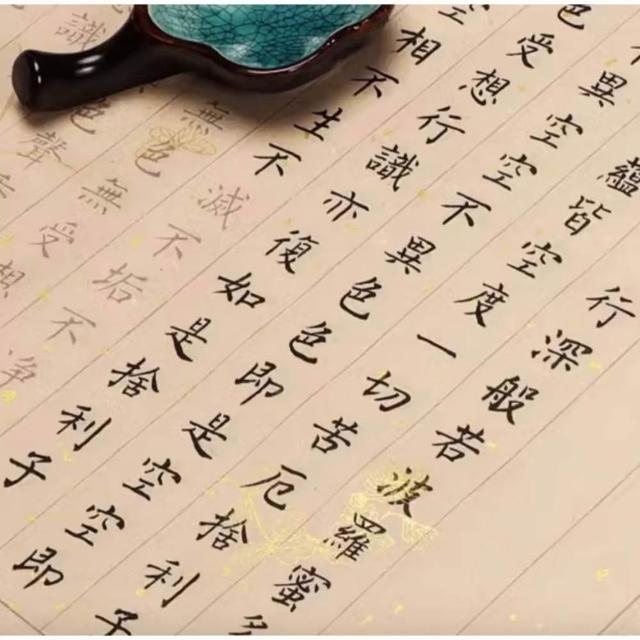 行深般若波羅蜜多
蘊皆空度一切苦厄捨利子
異空空不異色色即是空空即
色受想行識亦復如是捨利子
空相不生不滅不垢不净
無色無受想
色聲
識